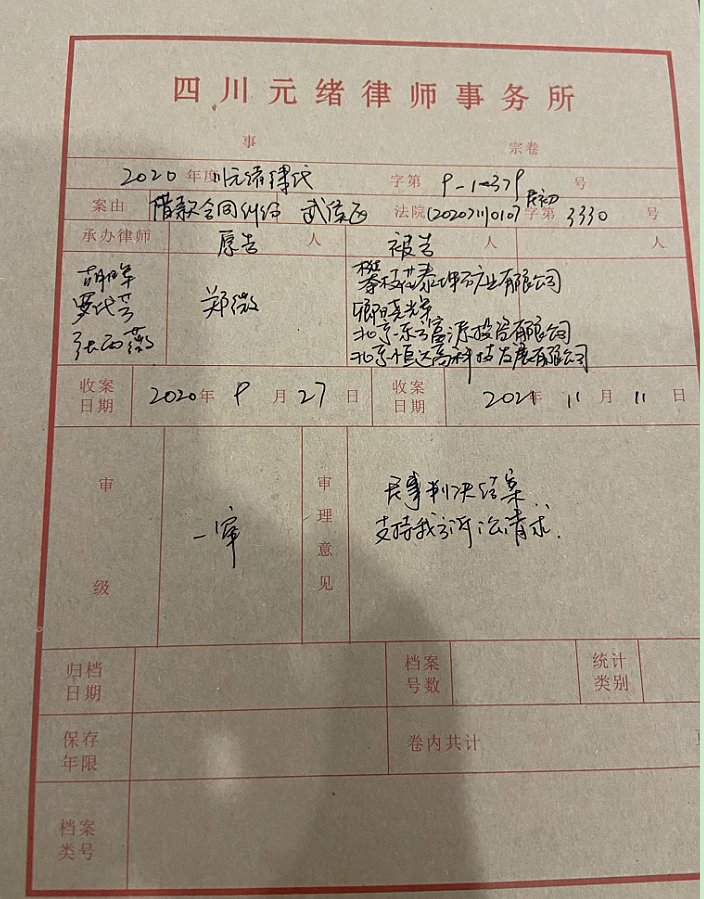 四川元绪律师事务所
事 宗卷
2020 年度 川元绪律代 字第 9-1-379 号
案由 借款合同纠纷 武侯区 法院 (2020)川0107民初 字第 3330 号
承办律师 原告 人 被告 人 人
胡 郑微 攀枝花泰坤矿业有限公司
罗 卿晓光
张 薇 北京东方富源投资有限公司
北京恒达高科技发展有限公司
收案日期 2020 年 9 月 27 日 收案日期 2021 年 11 月 11 日
审级 一审 审理意见 民事判决结案.
支持我方诉讼请求.
归档日期 档案号数 统计类别
保存年限 卷内共计
档案类号